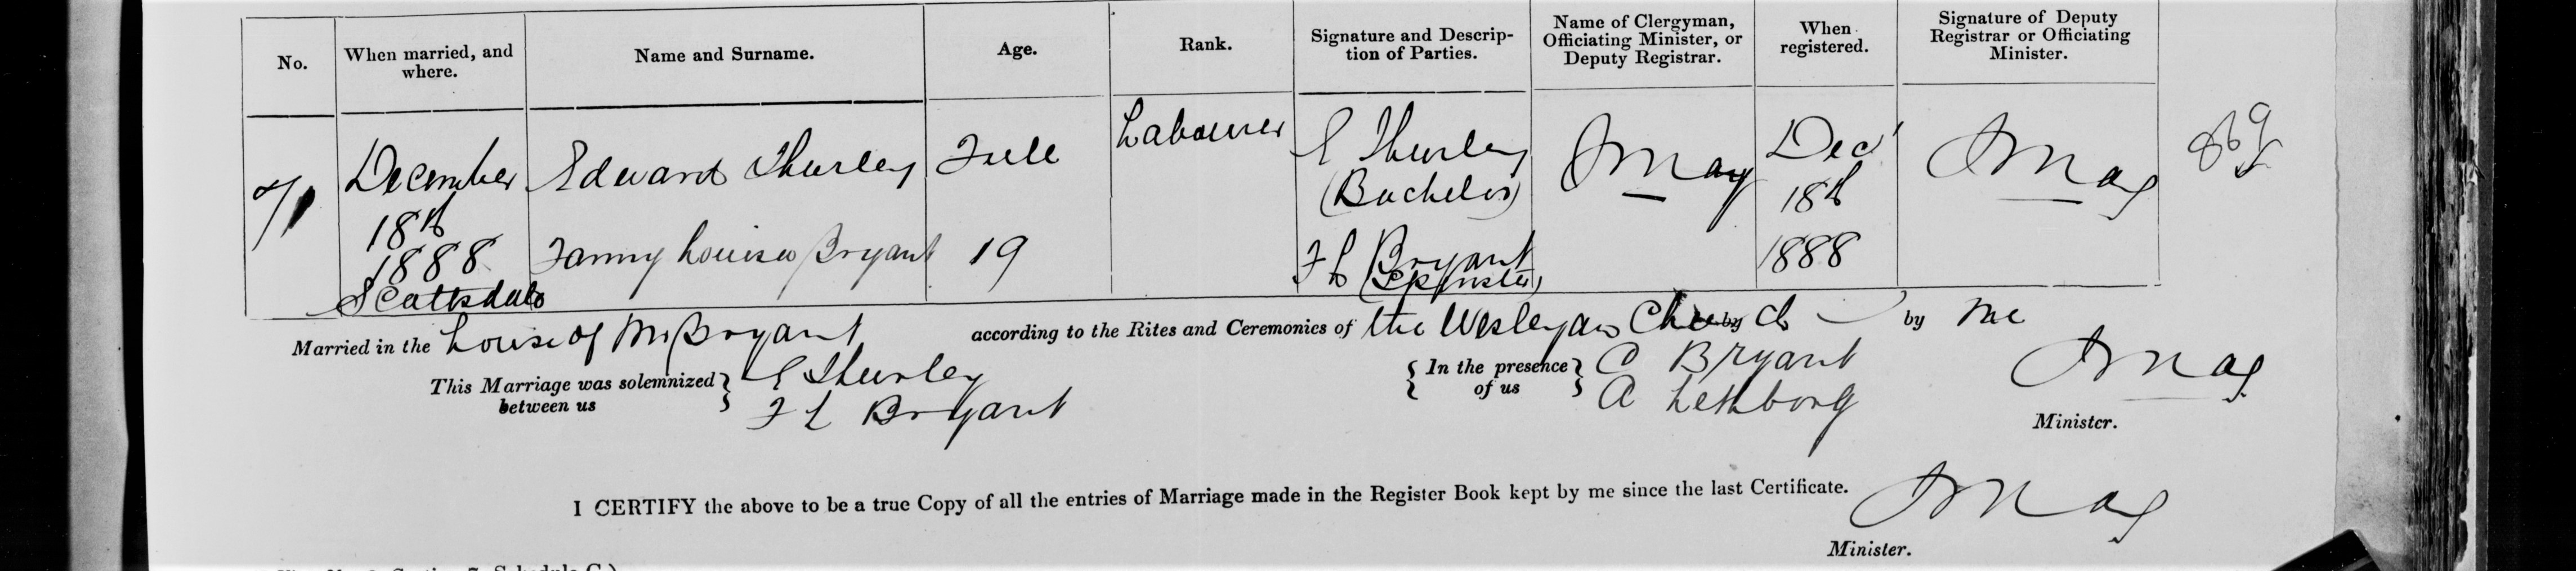 No. When married, and where. Name and Surname. Age. Rank. Signature and Description of Parties. Name of Clergyman, Officiating Minister, or Deputy Registrar. When registered. Signature of Deputy Registrar or Officiating Minister.
December 18th 1888 Scottsdale
Edward Thurley Full Labourer E Thurley (Bachelor) May Dec' 18th 1888 May
Fanny Louisa Bryant 19 F L Bryant (Spinster)
Married in the house of Mr Bryant according to the Rites and Ceremonies of the Wesleyan Church by me
This Marriage was solemnized between us } E Thurley
F L Bryant
{ In the presence of us } C Bryant
A Lethborg
May
Minister.
I CERTIFY the above to be a true Copy of all the entries of Marriage made in the Register Book kept by me since the last Certificate. May
Minister.